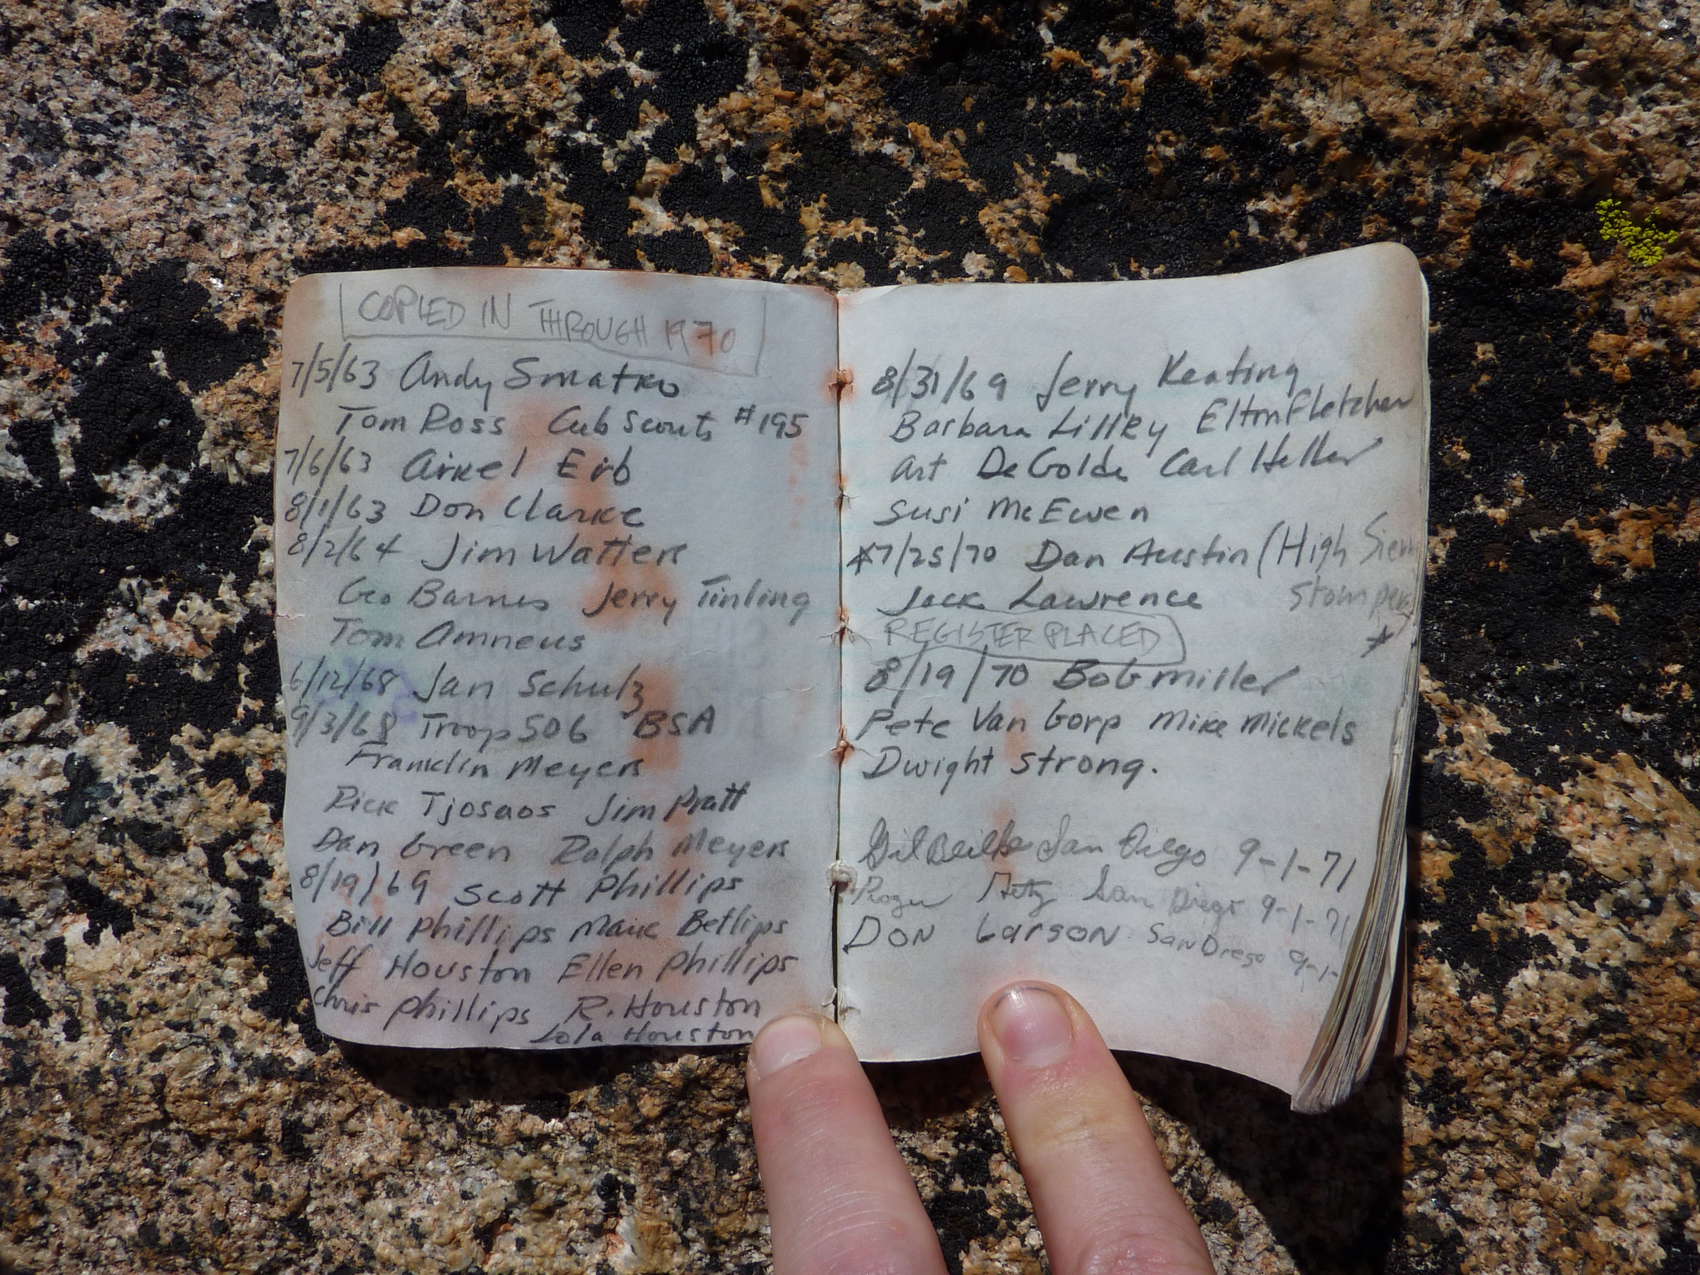 COPIED IN THROUGH 1970
7/5/63 Andy Smatko
Tom Ross Cub Scouts #195
7/6/63 Arkel Erb
8/1/63 Don Clarke
8/2/64 Jim Watters
Geo Barnes Jerry Tinling
Tom Amneus
6/12/68 Jan Schulz
9/3/68 Troop 506 BSA
Franklin Meyers
Rick Tjosaos Jim Pratt
Dan Green Ralph Meyers
8/19/69 Scott Phillips
Bill Phillips Mark Betlips
Jeff Houston Ellen Phillips
Chris Phillips R. Houston
Lola Houston
8/31/69 Jerry Keating
Barbara Lilley Elton Fletcher
Art DeGolde Carl Heller
Susi McEwen
*7/25/70 Dan Austin (High Sierra
Jack Lawrence Stompers
REGISTER PLACED *
8/19/70 Bob Miller
Pete Van Gorp Mike Mickels
Dwight Strong.
San Diego 9-1-71
Roger San Diego 9-1-71
DON Larson San Diego 9-1-